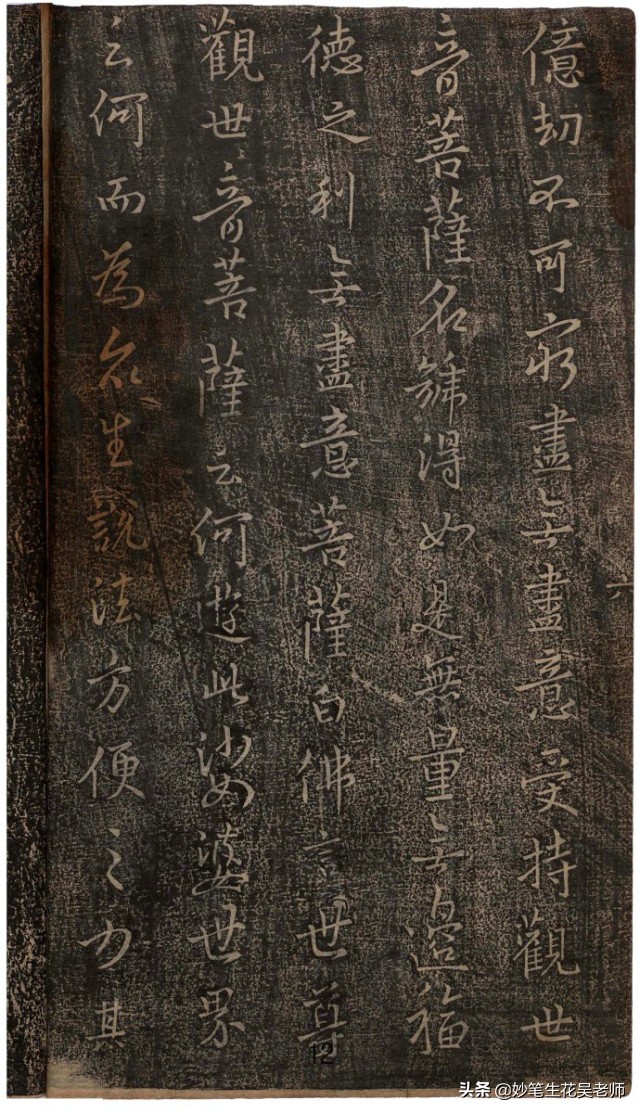 億劫不可窮盡無盡意受持觀世
音菩薩名號得如是無量無邊福
德之利無盡意菩薩白佛言世尊
觀世音菩薩云何遊此娑婆世界
云何而為眾生說法方便之力其
六
12
头条 @妙笔生花吴老师